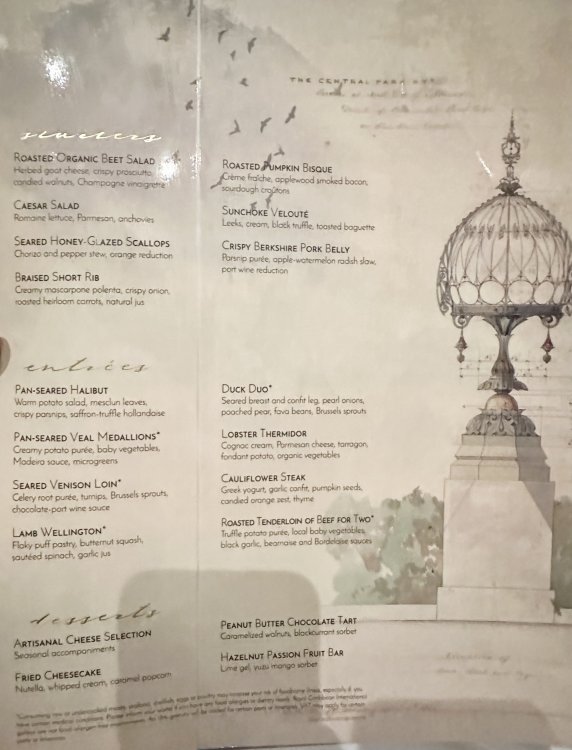 THE CENTRAL PARK
starters
ROASTED ORGANIC BEET SALAD
Herbed goat cheese, crispy prosciutto,
candied walnuts, Champagne vinaigrette
CAESAR SALAD
Romaine lettuce, Parmesan, anchovies
SEARED HONEY-GLAZED SCALLOPS
Chorizo and pepper stew, orange reduction
BRAISED SHORT RIB
Creamy mascarpone polenta, crispy onion,
roasted heirloom carrots, natural jus
ROASTED PUMPKIN BISQUE
Crème fraîche, applewood smoked bacon,
sourdough croûtons
SUNCHOKE VELOUTÉ
Leeks, cream, black truffle, toasted baguette
CRISPY BERKSHIRE PORK BELLY
Parsnip purée, apple-watermelon radish slaw,
port wine reduction
entrées
PAN-SEARED HALIBUT
Warm potato salad, mesclun leaves,
crispy parsnips, saffron-truffle hollandaise
PAN-SEARED VEAL MEDALLIONS*
Creamy potato purée, baby vegetables,
Madeira sauce, microgreens
SEARED VENISON LOIN*
Celery root purée, turnips, Brussels sprouts,
chocolate-port wine sauce
LAMB WELLINGTON*
Flaky puff pastry, butternut squash,
sautéed spinach, garlic jus
DUCK DUO*
Seared breast and confit leg, pearl onions,
poached pear, fava beans, Brussels sprouts
LOBSTER THERMIDOR
Cognac cream, Parmesan cheese, tarragon,
fondant potato, organic vegetables
CAULIFLOWER STEAK
Greek yogurt, garlic confit, pumpkin seeds,
candied orange zest, thyme
ROASTED TENDERLOIN OF BEEF FOR TWO*
Truffle potato purée, local baby vegetables,
black garlic, bearnaise and Bordelaise sauces
desserts
ARTISANAL CHEESE SELECTION
Seasonal accompaniments
FRIED CHEESECAKE
Nutella, whipped cream, caramel popcorn
PEANUT BUTTER CHOCOLATE TART
Caramelized walnuts, blackcurrant sorbet
HAZELNUT PASSION FRUIT BAR
Lime gel, yuzu mango sorbet
*Consuming raw or undercooked meats, seafood, shellfish, eggs or poultry may increase your risk of foodborne illness, especially if you
have certain medical conditions. Please inform your waiter if you have any food allergies or dietary needs. Royal Caribbean International
galleys are not food allergen-free environments. will be added for certain ports or itineraries. VAT may apply for certain
ports or itineraries.